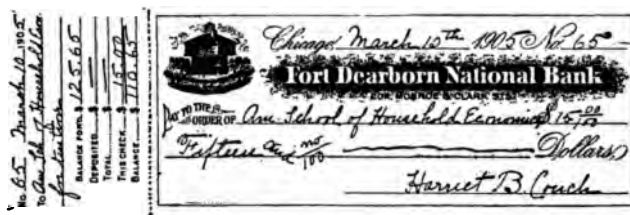 No. 65 March 10 1905
To Am. Sch of Household Econ.
for tuition
BALANCE FORD. $ 125.65
DEPOSITED $
TOTAL $
THIS CHECK $ 15.00
BALANCE $ 110.65
Chicago, March 10th 1905 No. 65
Fort Dearborn National Bank
COR. MONROE & CLARK STS.
PAY TO THE ORDER OF Am. School of Household Economics $ 15 00/100
Fifteen and no/100 Dollars
Harriet B. Couch